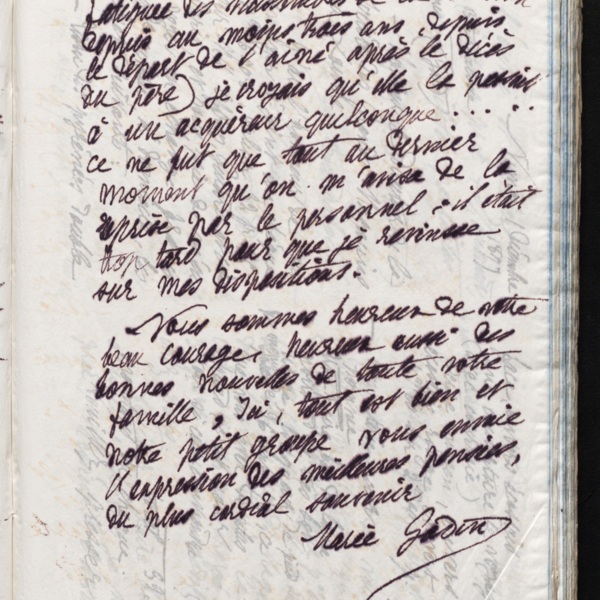 fatiguée des
depuis au moins trois ans, depuis
le départ de l'aîné après le décès
du père) je croyais qu'elle la
à un acquéreur quelconque . . . . .
ce ne fut que tout au dernier
moment qu'on m'avisa de la
reprise par le personnel ; il était
trop tard pour que je revinsse
sur mes dispositions.
Nous sommes heureux de votre
beau courage, heureux aussi des
bonnes nouvelles de toute votre
famille, Ici, tout est bien et
notre petit groupe vous envoie
l'expression des meilleures pensées,
du plus cordial souvenir
Marie Godin